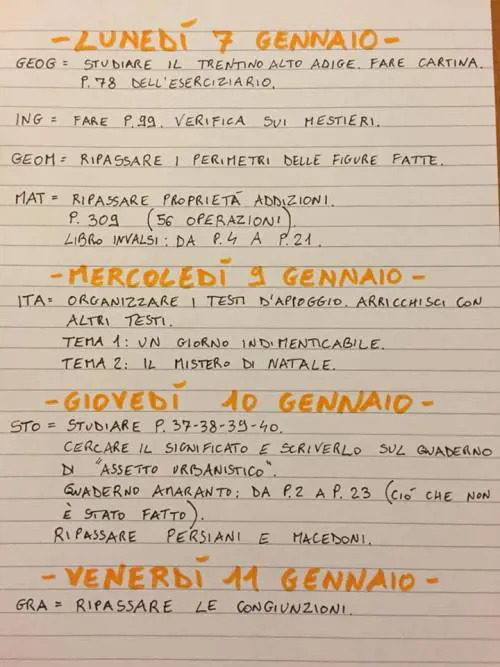 -LUNEDÍ 7 GENNAIO-
GEOG = STUDIARE IL TRENTINO ALTO ADIGE. FARE CARTINA.
P. 78 DELL'ESERCIZIARIO.
ING = FARE P. 99. VERIFICA SUI MESTIERI.
GEOM = RIPASSARE I PERIMETRI DELLE FIGURE FATTE.
MAT = RIPASSARE PROPRIETÁ ADDIZIONI.
P. 309 (56 OPERAZIONI).
LIBRO INVALSI: DA P. 4 A P. 21.
-MERCOLEDÍ 9 GENNAIO-
ITA = ORGANIZZARE I TESTI D'APPOGGIO. ARRICCHISCI CON
ALTRI TESTI.
TEMA 1: UN GIORNO INDIMENTICABILE.
TEMA 2: IL MISTERO DI NATALE.
-GIOVEDÍ 10 GENNAIO-
STO = STUDIARE P. 37-38-39-40.
CERCARE IL SIGNIFICATO E SCRIVERLO SUL QUADERNO
DI "ASSETTO URBANISTICO".
QUADERNO AMARANTO: DA P. 2 A P. 23 (CIÓ CHE NON
È STATO FATTO).
RIPASSARE PERSIANI E MACEDONI.
-VENERDÍ 11 GENNAIO-
GRA = RIPASSARE LE CONGIUNZIONI.